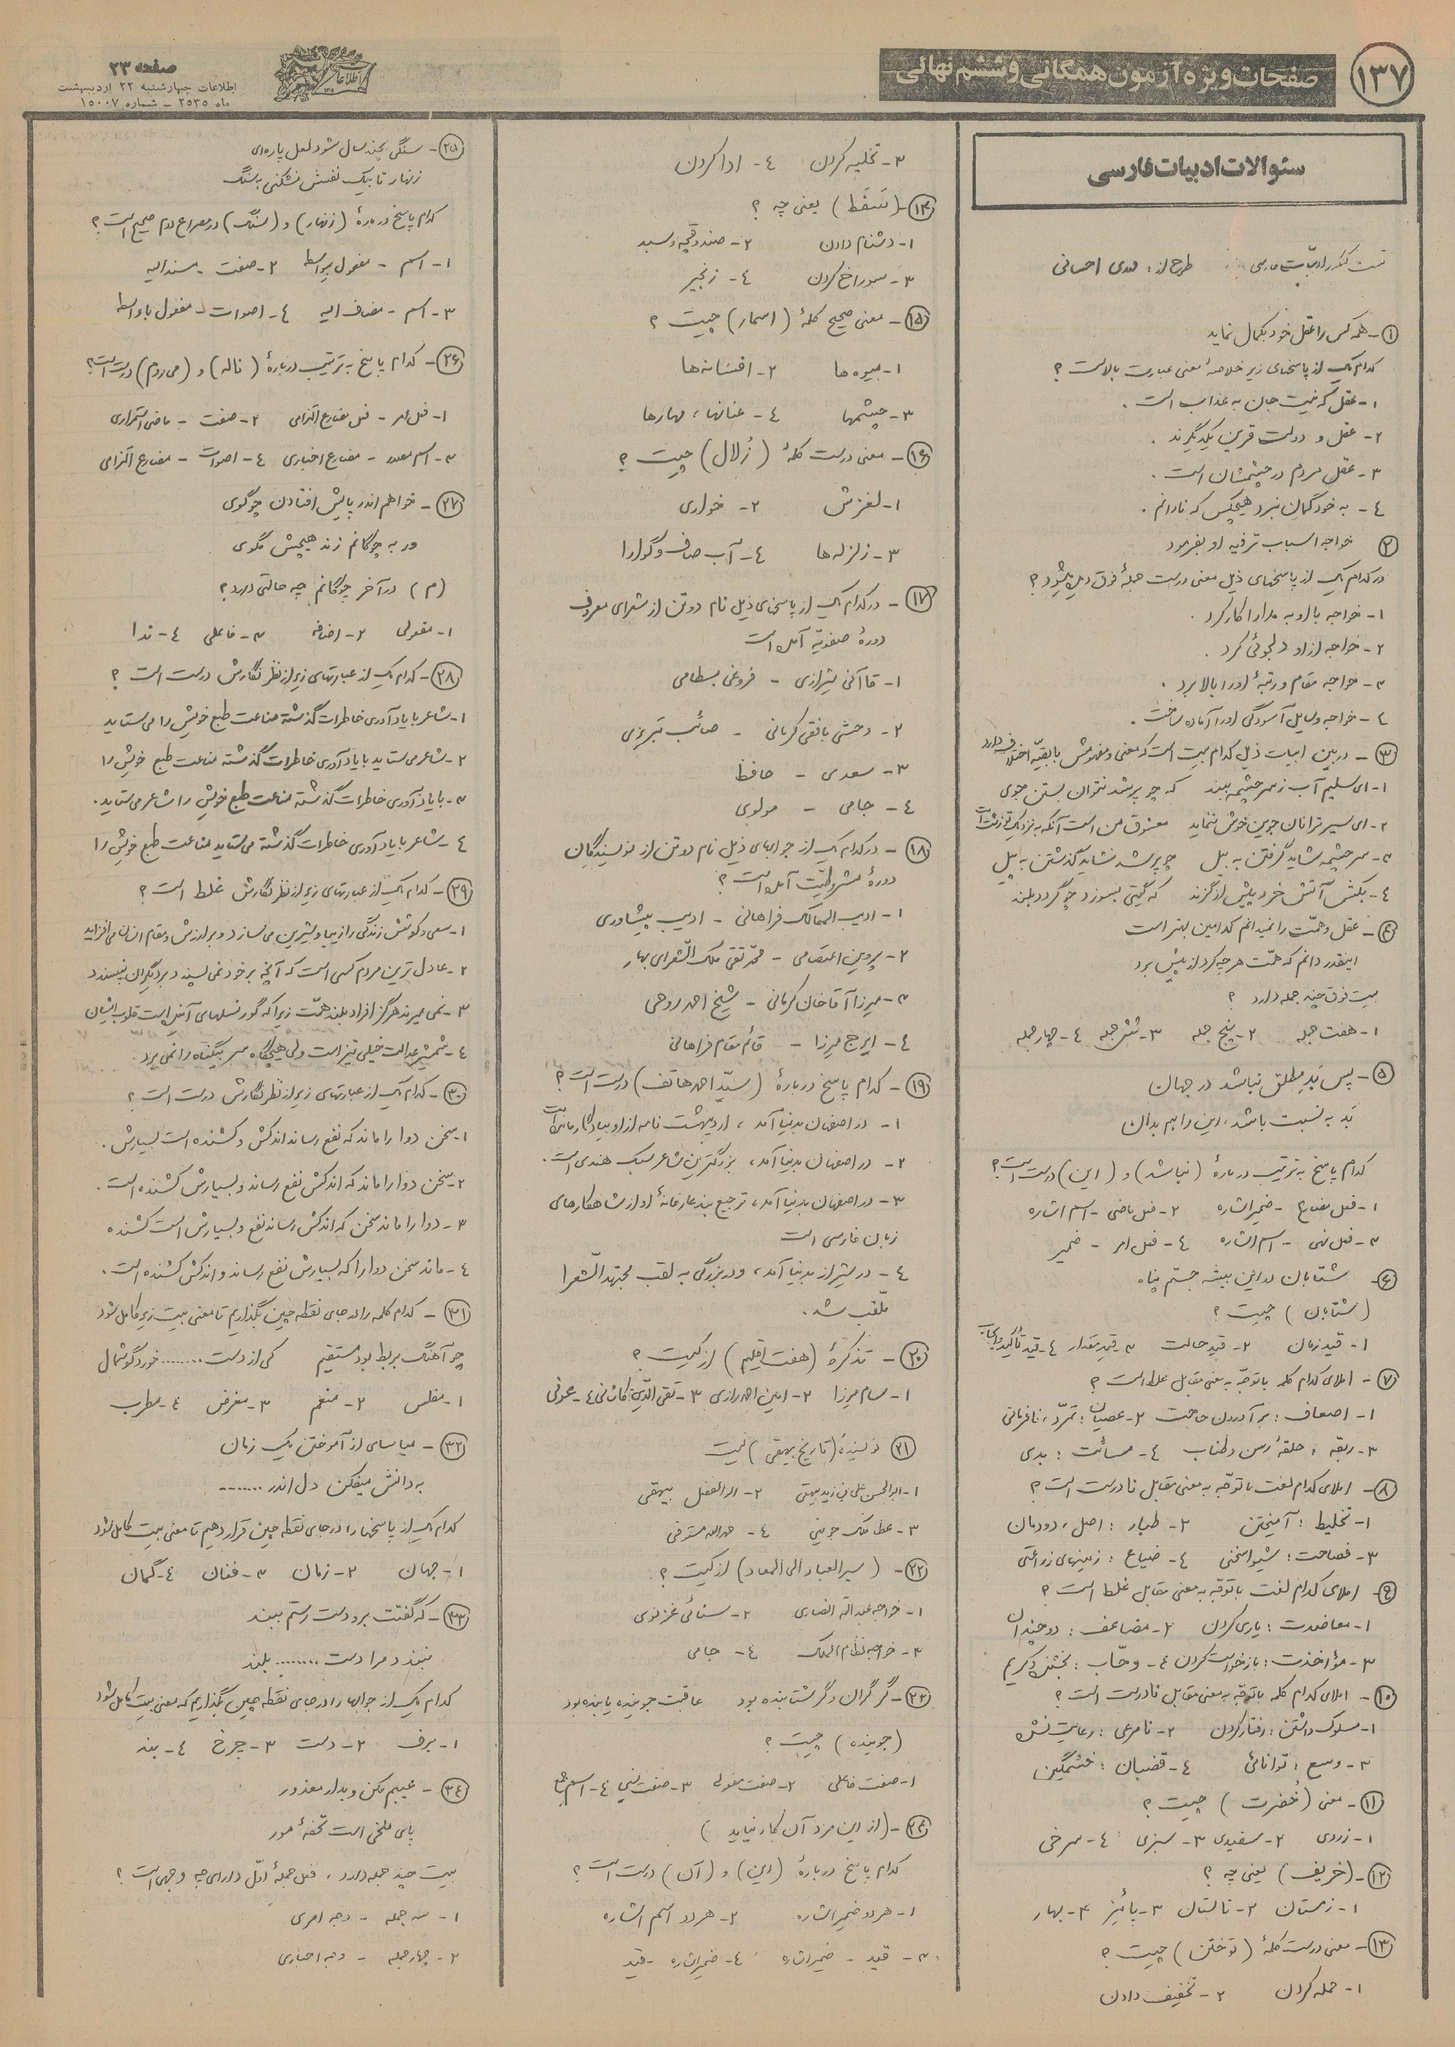 ۱۳۷
صفحات ویژه آزمون همگانی و ششم نهائی
صفحه ۲۳
اطلاعات چهارشنبه ۲۲ اردیبهشت
ماه ۲۵۳۵ – شماره ۱۵۰۰۷
اطلاعات
سئوالات ادبیات فارسی
تست کنکور ادبیات فارسی طرح از: مهدی احسانی
۱- همه کس را عقل خود بکمال نماید
کدام یک از پاسخهای زیر خلاصهٔ معنی عبارت بالاست؟
۱- عقل که نیست جان به عذاب است.
۲- عقل و دولت قرین یکدیگرند.
۳- عقل مردم در چشمشان است.
۴- به خود گمان نبرد هیچکس که نادانم.
۲ خواجه اسباب ترفیه او بفرمود
در کدام یک از پاسخهای ذیل معنی درست جملهٔ فوق دیده میشود؟
۱- خواجه با او به مدارا کار کرد.
۲- خواجه از او دلجوئی کرد.
۳- خواجه مقام و رتبهٔ او را بالا برد.
۴- خواجه وسایل آسودگی او را آماده ساخت.
۳- در بین ابیات ذیل کدام بیت است که معنی و مفهومش با بقیه اختلاف دارد
۱- ای سلیم آب ز سرچشمه ببند که چو پر شد نتوان بستن جوی
۲- ای سیر ترا نان جوین خوش ننماید معشوق من است آنکه به نزدیک تو زشت است
۳- سر چشمه شاید گرفتن به بیل چو پر شد نشاید گذشتن به پیل
۴- بکش آتش خرد پیش از گزند که گیتی بسوزد چو گردد بلند
۴- عقل و همّت را نمیدانم کدامین بهتر است
اینقدر دانم که همّت هر چه کرد از پیش برد
بیت فوق چند جمله دارد؟
۱- هفت جمله ۲- پنج جمله ۳- شش جمله ۴- چهار جمله
۵- پس بَدِ مطلق نباشد در جهان
بَد به نسبت باشد، این را هم بدان
کدام پاسخ به ترتیب دربارهٔ (نباشد) و (این) درست است؟
۱- فعل مضارع - ضمیر اشاره ۲- فعل ماضی - اسم اشاره
۳- فعل نهی - اسم اشاره ۴- فعل امر - ضمیر
۶- شتابان در این بیشه جستم پناه
(شتابان) چیست؟
۱- قید زمان ۲- قید حالت ۳- قید مقدار ۴- قید تأکید و ایجاب
۷- املای کدام کلمه با توجّه به معنی مقابل غلط است؟
۱- اصعاف: برآوردن حاجت ۲- عصیان: تمرّد، نافرمانی
۳- ربقه: حلقهٔ رسن و طناب ۴- مسائت: بدی
۸- املای کدام لغت با توجّه به معنی مقابل نادرست است؟
۱- تخلیط: آمیختن ۲- طبار: اصل، دودمان
۳- فصاحت: شیوا سخنی ۴- ضیاع: زمینهای زراعتی
۹- املای کدام لغت با توجّه به معنی مقابل غلط است؟
۱- معاضدت: یاری کردن ۲- مضاعف: دو چندان
۳- مؤاخذت: بازخواست کردن ۴- وحّاب: بخشنده کریم
۱۰- املای کدام کلمه با توجّه به معنی مقابل نادرست است؟
۱- مسلوک داشتن: رفتار کردن ۲- نامرعی: رعایت نشده
۳- وسع: توانائی ۴- قضبان: خشمگین
۱۱- معنی (خُضرت) چیست؟
۱- زردی ۲- سفیدی ۳- سبزی ۴- سرخی
۱۲- (خریف) یعنی چه؟
۱- زمستان ۲- تابستان ۳- پائیز ۴- بهار
۱۳- معنی درست کلمهٔ (توختن) چیست؟
۱- حمله کردن ۲- تخفیف دادن
۳- تخلیه کردن ۴- ادا کردن
۱۴- (سَفَط) یعنی چه؟
۱- دشنام دادن ۲- صندوقچه و سبد
۳- سوراخ کردن ۴- زنجیر
۱۵- معنی صحیح کلمهٔ (اسمار) چیست؟
۱- میوه‌ها ۲- افسانه‌ها
۳- چشمها ۴- عنانها، مهارها
۱۶- معنی درست کلمهٔ (زُلال) چیست؟
۱- لغزش ۲- خواری
۳- زلزله‌ها ۴- آب صاف و گوارا
۱۷- در کدام یک از پاسخهای ذیل نام دو تن از شعرای معروف
دورهٔ صفویّه آمده است
۱- قاآنی شیرازی - فروغی بسطامی
۲- وحشی بافقی کرمانی - صائب تبریزی
۳- سعدی - حافظ
۴- جامی - مولوی
۱۸- در کدام یک از جوابهای ذیل نام دو تن از نویسندگان
دورهٔ مشروطیّت آمده است؟
۱- ادیب الممالک فراهانی - ادیب پیشاوری
۲- پروین اعتصامی - محمّد تقی ملک الشّعرای بهار
۳- میرزا آقا خان کرمانی - شیخ احمد روحی
۴- ایرج میرزا - قائم مقام فراهانی
۱۹- کدام پاسخ دربارهٔ (سیّد احمد هاتف) درست است؟
۱- در اصفهان بدنیا آمد، اردیبهشت نامه از او بیادگار مانده است
۲- در اصفهان بدنیا آمد، بزرگترین شاعر سبک هندی است.
۳- در اصفهان بدنیا آمد، ترجیع بند عارفانهٔ او از شاهکارهای
زبان فارسی است
۴- در شیراز بدنیا آمد، و در بزرگی به لقب مجتهد الشّعرا
ملّقب شد.
۲۰- تذکرهٔ (هفت اقلیم) از کیست؟
۱- سام میرزا ۲- امین احمد رازی ۳- تقی الدّین کاشانی ۴- عوفی
۲۱ نویسندهٔ (تاریخ بیهقی) کیست
۱- ابوالحسن علی بن زید بیهقی ۲- ابوالفضل بیهقی
۳- عطا ملک جوینی ۴- حمدالله مستوفی
۲۲- (سیرالعباد الی المعاد) از کیست؟
۱- خواجه عبدالله انصاری ۲- سنائی غزنوی
۳- خواجه نظام الملک ۴- جامی
۲۳- گر گران و گر شتابنده بود عاقبت جوینده یابنده بود
(جوینده) چیست؟
۱- صفت فاعلی ۲- صفت مفعولی ۳- صفت نسبی ۴- اسم جمع
۲۴- (از این مرد آن کار نیاید)
کدام پاسخ دربارهٔ (این) و (آن) درست است؟
۱- هر دو ضمیر اشاره ۲- هر دو اسم اشاره
۳- قید - ضمیر اشاره ۴- ضمیر اشاره - قید
۲۵- سنگی بچند سال شود لعل پاره‌ای
زنهار تا بیک نفسش نشکنی به سنگ
کدام پاسخ دربارهٔ (زنهار) و (سنگ) در مصراع دوم صحیح است؟
۱- اسم - مفعول بیواسطه ۲- صفت - مسندالیه
۳- اسم - مضاف الیه ۴- اصوات - مفعول باواسطه
۲۶- کدام پاسخ به ترتیب دربارهٔ (ناله) و (می‌روم) درست است؟
۱- فعل امر - فعل مضارع التزامی ۲- صفت - ماضی استمراری
۳- اسم مصدر - مضارع اخباری ۴- اصوات - مضارع التزامی
۲۷- خواهم اندر پایش افتادن چو گوی
ور به چوگانم زند هیچش مگوی
(م) در آخر چوگانم چه حالتی دارد؟
۱- مفعولی ۲- اضافه ۳- فاعلی ۴- ندا
۲۸- کدام یک از عبارتهای زیر از نظر نگارش درست است؟
۱- شاعر با یادآوری خاطرات گذشته مناعت طبع خویش را می‌ستاید
۲- شاعر می‌ستاید با یادآوری خاطرات گذشته مناعت طبع خویش را
۳- با یادآوری خاطرات گذشته مناعت طبع خویش را شاعر می‌ستاید.
۴- شاعر با یادآوری خاطرات گذشته می‌ستاید مناعت طبع خویش را
۲۹- کدام یک از عبارتهای زیر از نظر نگارش غلط است؟
۱- سعی و کوشش زندگی را زیبا و شیرین می‌سازد و بر ارزش و مقام انسان می‌افزاید
۲- عادل ترین مردم کسی است که آنچه بر خود نمی‌پسندد بر دیگران نپسندد
۳- نمی‌میرند هرگز افراد بلند همّت زیرا که گور نسلهای آینده است قلوب ایشان
۴- شمشیر عدالت خیلی تیز است ولی هیچگاه سر بیگناه را نمی‌برد.
۳۰- کدام یک از عبارتهای زیر از نظر نگارش درست است؟
۱- سخن دوا را ماند که نفع رساند اندکش و کشنده است بسیارش.
۲- سخن دوا را ماند که اندکش نفع رساند و بسیارش کشنده است.
۳- دوا را ماند سخن که اندکش رساند نفع و بسیارش است کشنده
۴- ماند سخن دوا را که بسیارش نفع رساند و اندکش کشنده است.
۳۱- کدام کلمه را در جای نقطه چین بگذاریم تا معنی بیت زیر کامل شود
چو آهنگ بربط بود مستقیم کی از دست ........ خورد گوشمال
۱- مفلس ۲- منعم ۳- مغرض ۴- مطرب
۳۲- میاسای از آموختن یک زمان
به دانش میفکن دل اندر .......
کدام یک از پاسخها را در جای نقطه چین قرار دهیم تا معنی بیت کامل شود
۱- جهان ۲- زمان ۳- فغان ۴- گمان
۳۳- که گفتت برو دست رستم ببند
نبندد مرا دست ........ بلند
کدام یک از جوابها را در جای نقطه چین بگذاریم که معنی بیت کامل شود
۱- برف ۲- دست ۳- چرخ ۴- بند
۳۴- عیبم مکن و بدار معذور
پای ملخی است تحفهٔ مور
بیت چند جمله دارد، فعل جملهٔ اوّل دارای چه وجهی است؟
۱- سه جمله - وجه امری
۲- چهار جمله - وجه اخباری